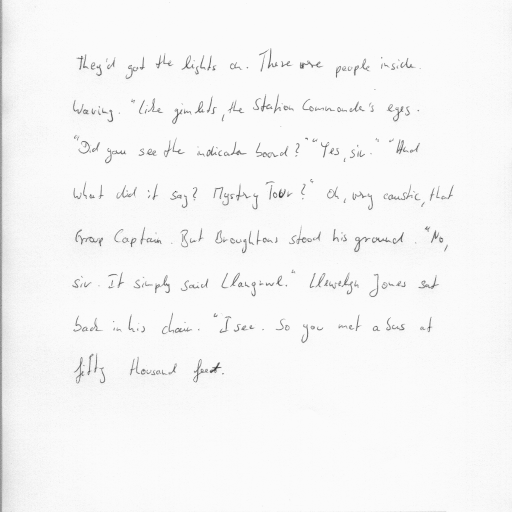 They'd got the lights on. There were people inside.
Waving. "Like gimlets, the Station Commande's eyes.
"Did you see the indicator board?" "Yes, sir." "And
what did it say? Mystery Tour?" Oh, very caustic, that
Group Captain. But Broughtons stood his ground. "No,
sir. It simply said Llangrwl." Llewelyn Jones sat
back in his chair. "I see. So you met a bus at
fifty thousand feet.